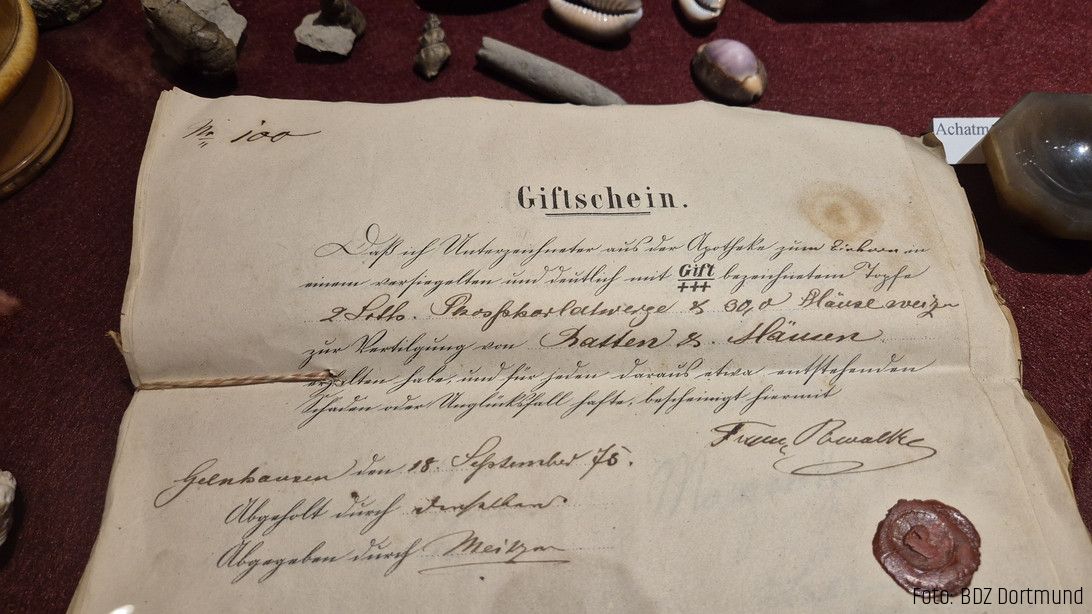 No 100
Achatm
Giftschein.
Daß ich Unterzeichneter aus der Apotheke zum Einhorn in
einem versiegelten und deutlich mit Gift bezeichneten Topfe
+++
2 Loth. Phosphorlatwerge & 30,0 Mäuseweizen
zur Vertilgung von Ratten & Mäusen
erhalten habe, und für jeden daraus etwa entstehenden
Schaden oder Unglücksfall hafte, bescheinigt hiermit
Gelnhausen den 18 September 75.
Abgeholt durch denselben
Abgegeben durch
Foto: BDZ Dortmund